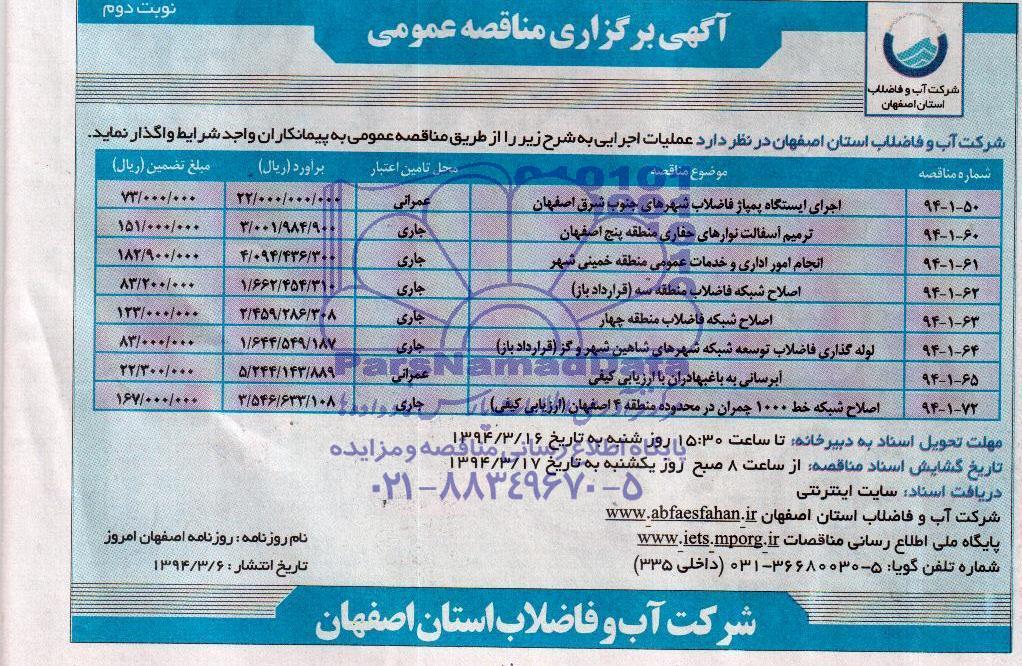 نوبت دوم
آگهی برگزاری مناقصه عمومی
شرکت آب و فاضلاب
استان اصفهان
شرکت آب و فاضلاب استان اصفهان در نظر دارد عملیات اجرایی به شرح زیر را از طریق مناقصه عمومی به پیمانکاران واجد شرایط واگذار نماید.
شماره مناقصه موضوع مناقصه محل تامین اعتبار برآورد (ریال) مبلغ تضمین (ریال)
۹۴-۱-۵۰ اجرای ایستگاه پمپاژ فاضلاب شهرهای جنوب شرق اصفهان عمرانی ۲۲/۰۰۰/۰۰۰/۰۰۰ ۷۳/۰۰۰/۰۰۰
۹۴-۱-۶۰ ترمیم آسفالت نوارهای حفاری منطقه پنج اصفهان جاری ۳/۰۰۱/۹۸۴/۹۰۰ ۱۵۱/۰۰۰/۰۰۰
۹۴-۱-۶۱ انجام امور اداری و خدمات عمومی منطقه خمینی شهر جاری ۴/۰۹۴/۴۳۶/۳۰۰ ۱۸۲/۹۰۰/۰۰۰
۹۴-۱-۶۲ اصلاح شبکه فاضلاب منطقه سه (قرارداد باز) جاری ۱/۶۶۲/۴۵۴/۳۱۰ ۸۳/۲۰۰/۰۰۰
۹۴-۱-۶۳ اصلاح شبکه فاضلاب منطقه چهار جاری ۲/۴۵۹/۲۸۶/۳۰۸ ۱۲۳/۰۰۰/۰۰۰
۹۴-۱-۶۴ لوله گذاری فاضلاب توسعه شبکه شهرهای شاهین شهر و گز (قرارداد باز) جاری ۱/۶۴۴/۵۴۹/۱۸۷ ۸۳/۰۰۰/۰۰۰
۹۴-۱-۶۵ آبرسانی به باغبهادران با ارزیابی کیفی عمرانی ۵/۲۴۴/۱۴۳/۸۸۹ ۲۲/۳۰۰/۰۰۰
۹۴-۱-۷۲ اصلاح شبکه خط ۱۰۰۰ چمران در محدوده منطقه ۴ اصفهان (ارزیابی کیفی) جاری ۳/۵۴۶/۶۳۳/۱۰۸ ۱۶۷/۰۰۰/۰۰۰
ParsNamadData
مهلت تحویل اسناد به دبیرخانه: تا ساعت ۱۵:۳۰ روز شنبه به تاریخ ۱۳۹۴/۳/۱۶
پایگاه اطلاع رسانی مناقصه و مزایده
تاریخ گشایش اسناد مناقصه: از ساعت ۸ صبح روز یکشنبه به تاریخ ۱۳۹۴/۳/۱۷
۰۲۱-۸۸۳۴۹۶۷۰-۵
دریافت اسناد: سایت اینترنتی
شرکت آب و فاضلاب استان اصفهان www.abfaesfahan.ir
پایگاه ملی اطلاع رسانی مناقصات www.iets.mporg.ir
شماره تلفن گویا: ۵-۳۶۶۸۰۰۳۰-۰۳۱ (داخلی ۳۳۵)
نام روزنامه: روزنامه اصفهان امروز
تاریخ انتشار: ۱۳۹۴/۳/۶
شرکت آب و فاضلاب استان اصفهان